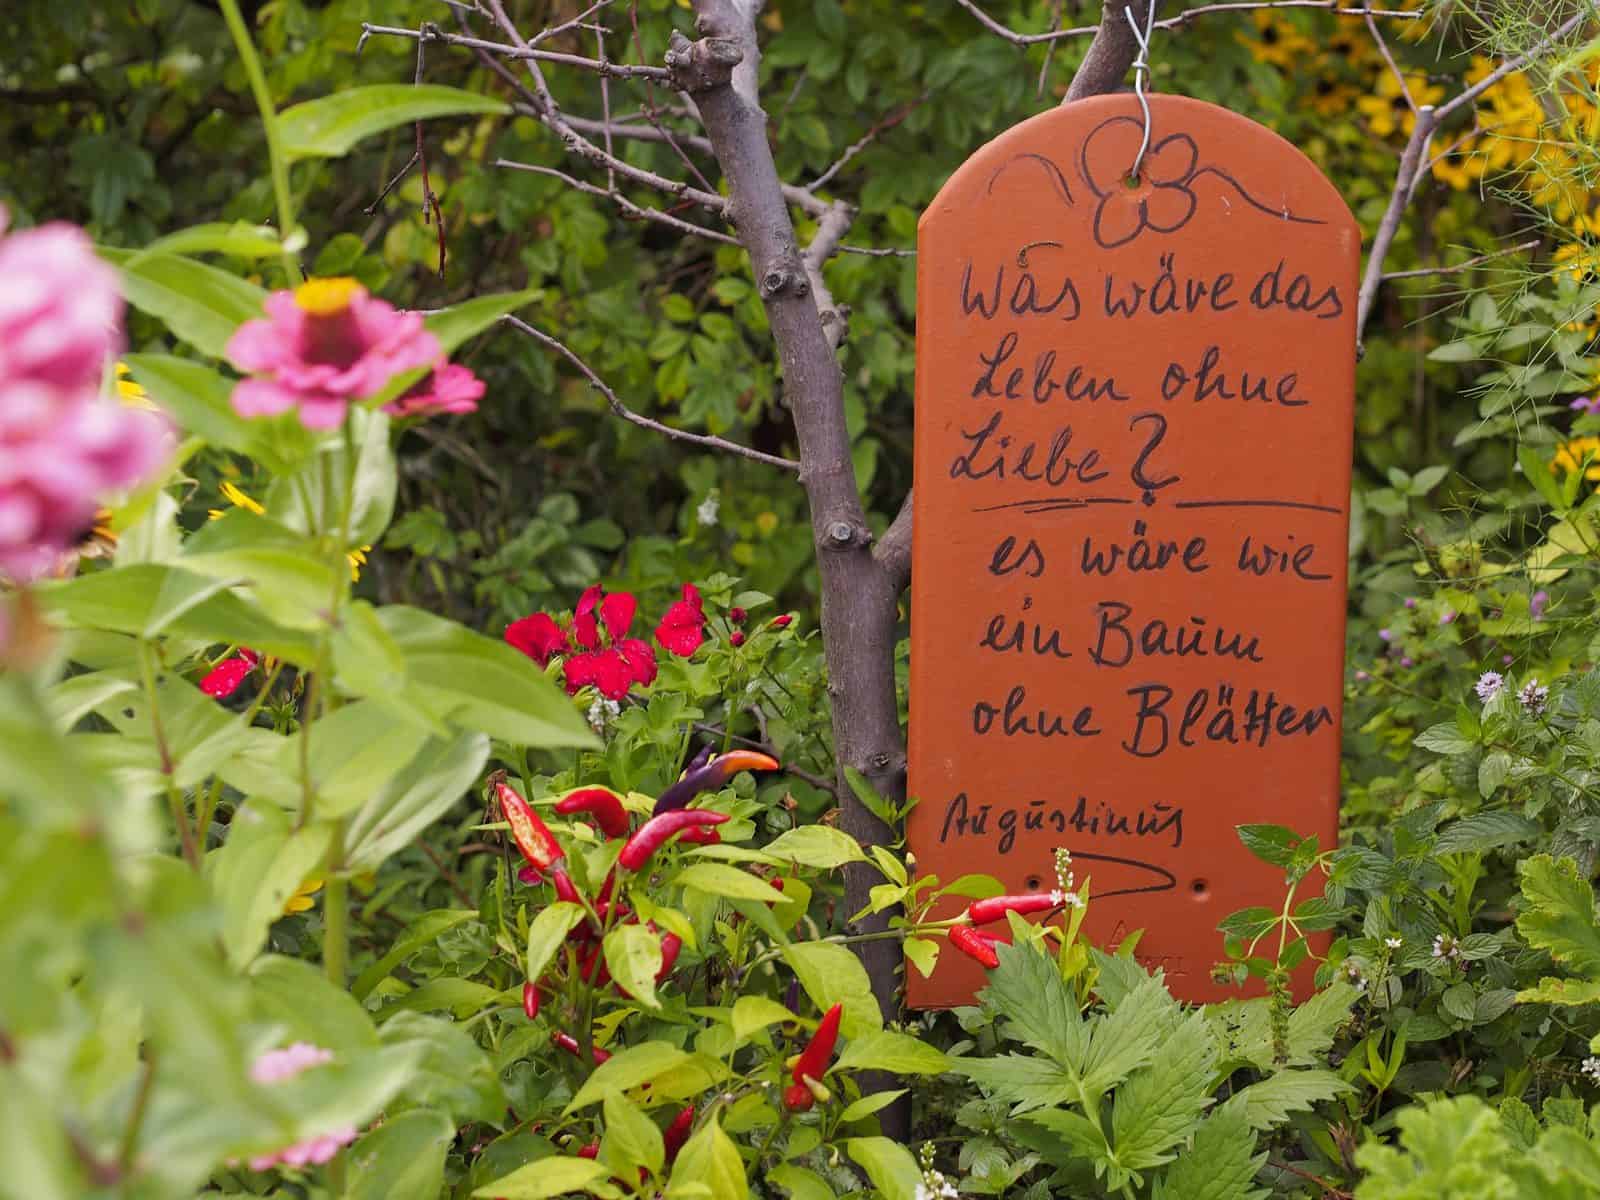 Was wäre das
Leben ohne
Liebe?
es wäre wie
ein Baum
ohne Blätter
Augustinus